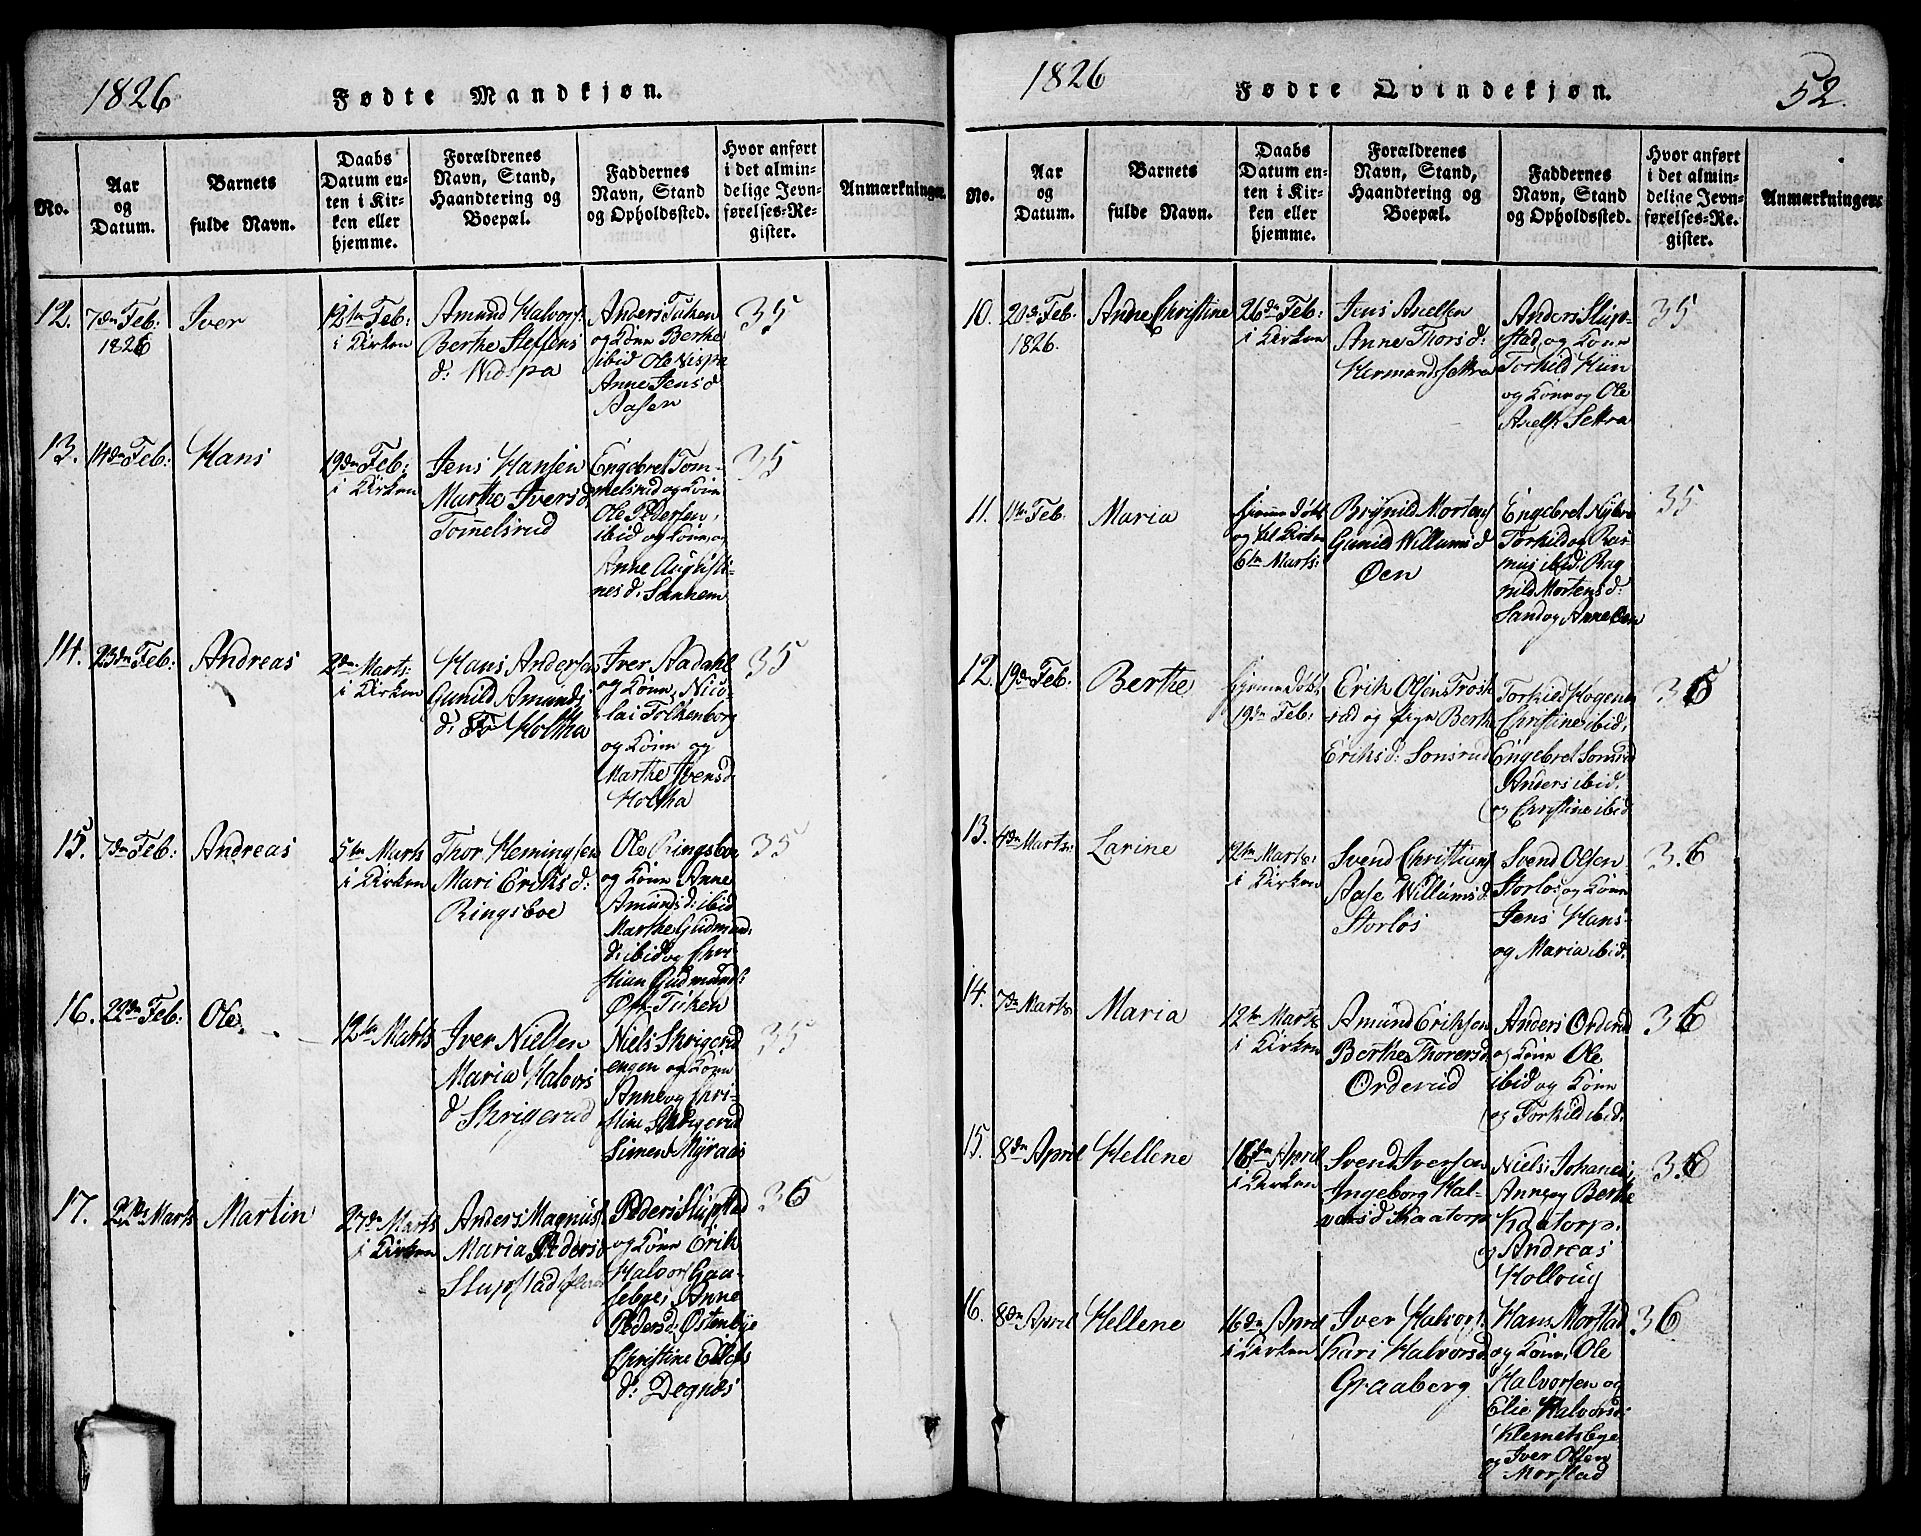 1826
Fødte Mandkjøn.
No.
Aar
og
Datum.
Barnets
fulde Navn.
Daabs
Datum en-
ten i Kir-
ken eller
hjemme.
Forældrenes
Navn, Stand,
Haandtering og
Boepæl.
Faddernes
Navn, Stand
og Opholdssted.
Hvor anført
i det almin-
delige Jevn-
førelses-Re-
gister.
Anmærkninger.
12.
7de Feb:
1826
Iver
12te Feb:
i Kirken
Amund Halvors:
Berthe Steffens
d: Nidspa
Anders
og Kone Berthe
ibid Ole Nespa
Anne Jensd
Aasen
35
13.
14de Feb:
Hans
19de Feb:
i Kirken
Jens Hansen
Marthe Iversd
Tom̄elsrud
Engebret Tom-
melsrud og Kone
Ole Pedersen,
ibid og Kone, og
Anne Augusti-
nesd: Sanhem
35
14.
23de Feb:
Andreas
2den Marts:
i Kirken
Hans Andersen
Gunild Amunds
d: Holtha
Iver Aadahl
og Kone, Nico-
lai Falkenborg
og Kone og
Marthe Iversd.
Holtha
35
15.
7de Feb:
Andreas
5te Marts
i Kirken
Thor Hemingsen
Mari Eriksd:
Ringsboe
Ole Ringsboe
og Kone Anne
Amundsd: ibid
Marthe Gudmund:
d: ibid og Chri-
stian Gudmunds:
35
16.
22de Feb:
Ole
12te Marts
Iver Nielsen
Maria Halvors
d Skrigerud
Niels Skrigerud
engen og Kone
Anne og Chri-
stine Skrigerud
Simen Myraas
35
17.
Marts
Martin
27de Marts
i Kirken
Anders Magnus:
Maria Pedersd
Slupstad
Peder Slupstad
og Kone Erik
Halvors: Gaa-
sebye, Anne
Pedersd, Østenbye
Christine Eilefs
d: Degnæs
36
1826
Fødte Qvindekjøn.
52.
No.
Aar
og
Datum.
Barnets
fulde Navn.
Daabs
Datum en-
ten i Kir-
ken eller
hjemme.
Forældrenes
Navn, Stand,
Haandtering og
Boepæl.
Faddernes
Navn, Stand
og Opholdssted.
Hvor anført
i det almin-
delige Jevn-
førelses-Re-
gister.
Anmærkninger.
10.
20de Feb.
1826.
Anne Christine
26de Feb:
i Kirken
Jens Axelsen
Anne Thorsd:
Hermandsettra
Anders Slup-
stad og Kone
Torkild Hün
og Kone og Ole
Axels: Settra
35
11.
11te Feb.
Maria
hjemme Døbt
og til Kirken
6te Marts:
Brynild Mortens
Gunild Willumsd
Øen
Engebret Nybro
Torkild og Ras-
mus ibid: Rag
nild Mortensd:
Sand og Anne Øen
35
12.
19de Feb.
Berthe
hjemme Døbt
19de Feb:
Erik Olsen Trosk
rud og Pige Berthe
Eriksd: Sonsrud
Torkild Hogenæs
Christine ibid,
Engebret Sonsrud
Anders ibid,
og Christine ibid
36
13.
4de Marts:
Larine
12te Marts:
i Kirken
Svend Christians
Aase Willumsd:
Storløs
Svend Olsen
Storløs og Kone
Jens Hans-
og Maria ibid:
3.6
14.
7de Marts:
Maria
12te Marts
i Kirken
Amund Eriksen
Berthe Thorersd
Orderud
Anders Orderud
og Kone Ole
ibid og Kone
og Torkild ibid:
36
15.
8de April
Hellene
16de April
i Kirken
Svend Iversen
Ingeborg Hal-
vorsd Kaatorp
Niels Johanes:
Anne og Berthe
Kaatorp:
og Andreas
Hollvug
3.6
16.
8de April
Hellene
16de April
i Kirken
Iver Halvors:
Kari Halvorsd
Graaberg
Hans Morstad
og Kone, Ole
Halvorsen og
Elie Halvorsd:
Klemetsbye
og Iver Olsen
Morstad
36